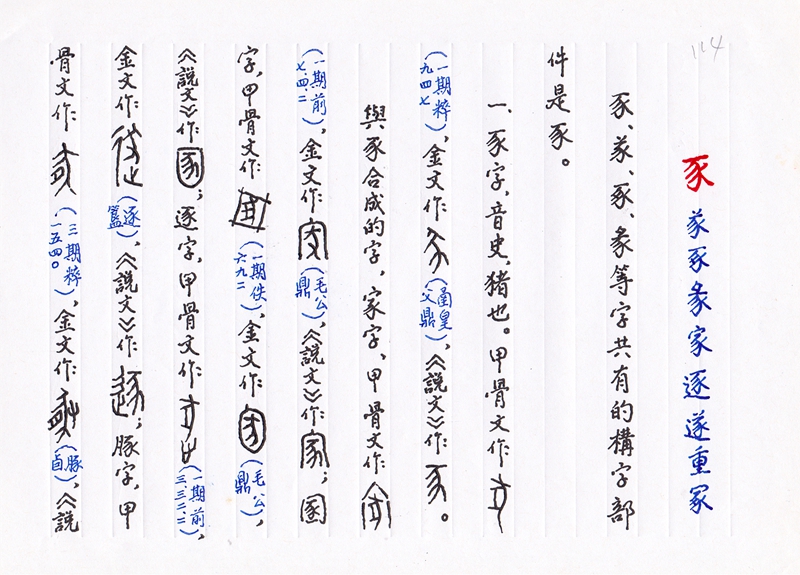 114
豕 㒸豖彖家逐遂重冢
豕、㒸、豖、彖等字共有的構字部
件是豕。
一、豕字，音史，猪也。甲骨文作:
（一期粹九四七），金文作:（圅皇父鼎），《說文》作:。
與豕合成的字，家字，甲骨文作:
（一期前七、四、二），金文作:（毛公鼎），《說文》作:；圂
字，甲骨文作:（一期佚六九二），金文作:（毛公鼎），
《說文》作:；逐字，甲骨文作:（一期前，三、三二、二），
金文作:（逐簋），《說文》作:；豚字，甲
骨文作:（三期粹一五四〇），金文作:（豚卣），《說